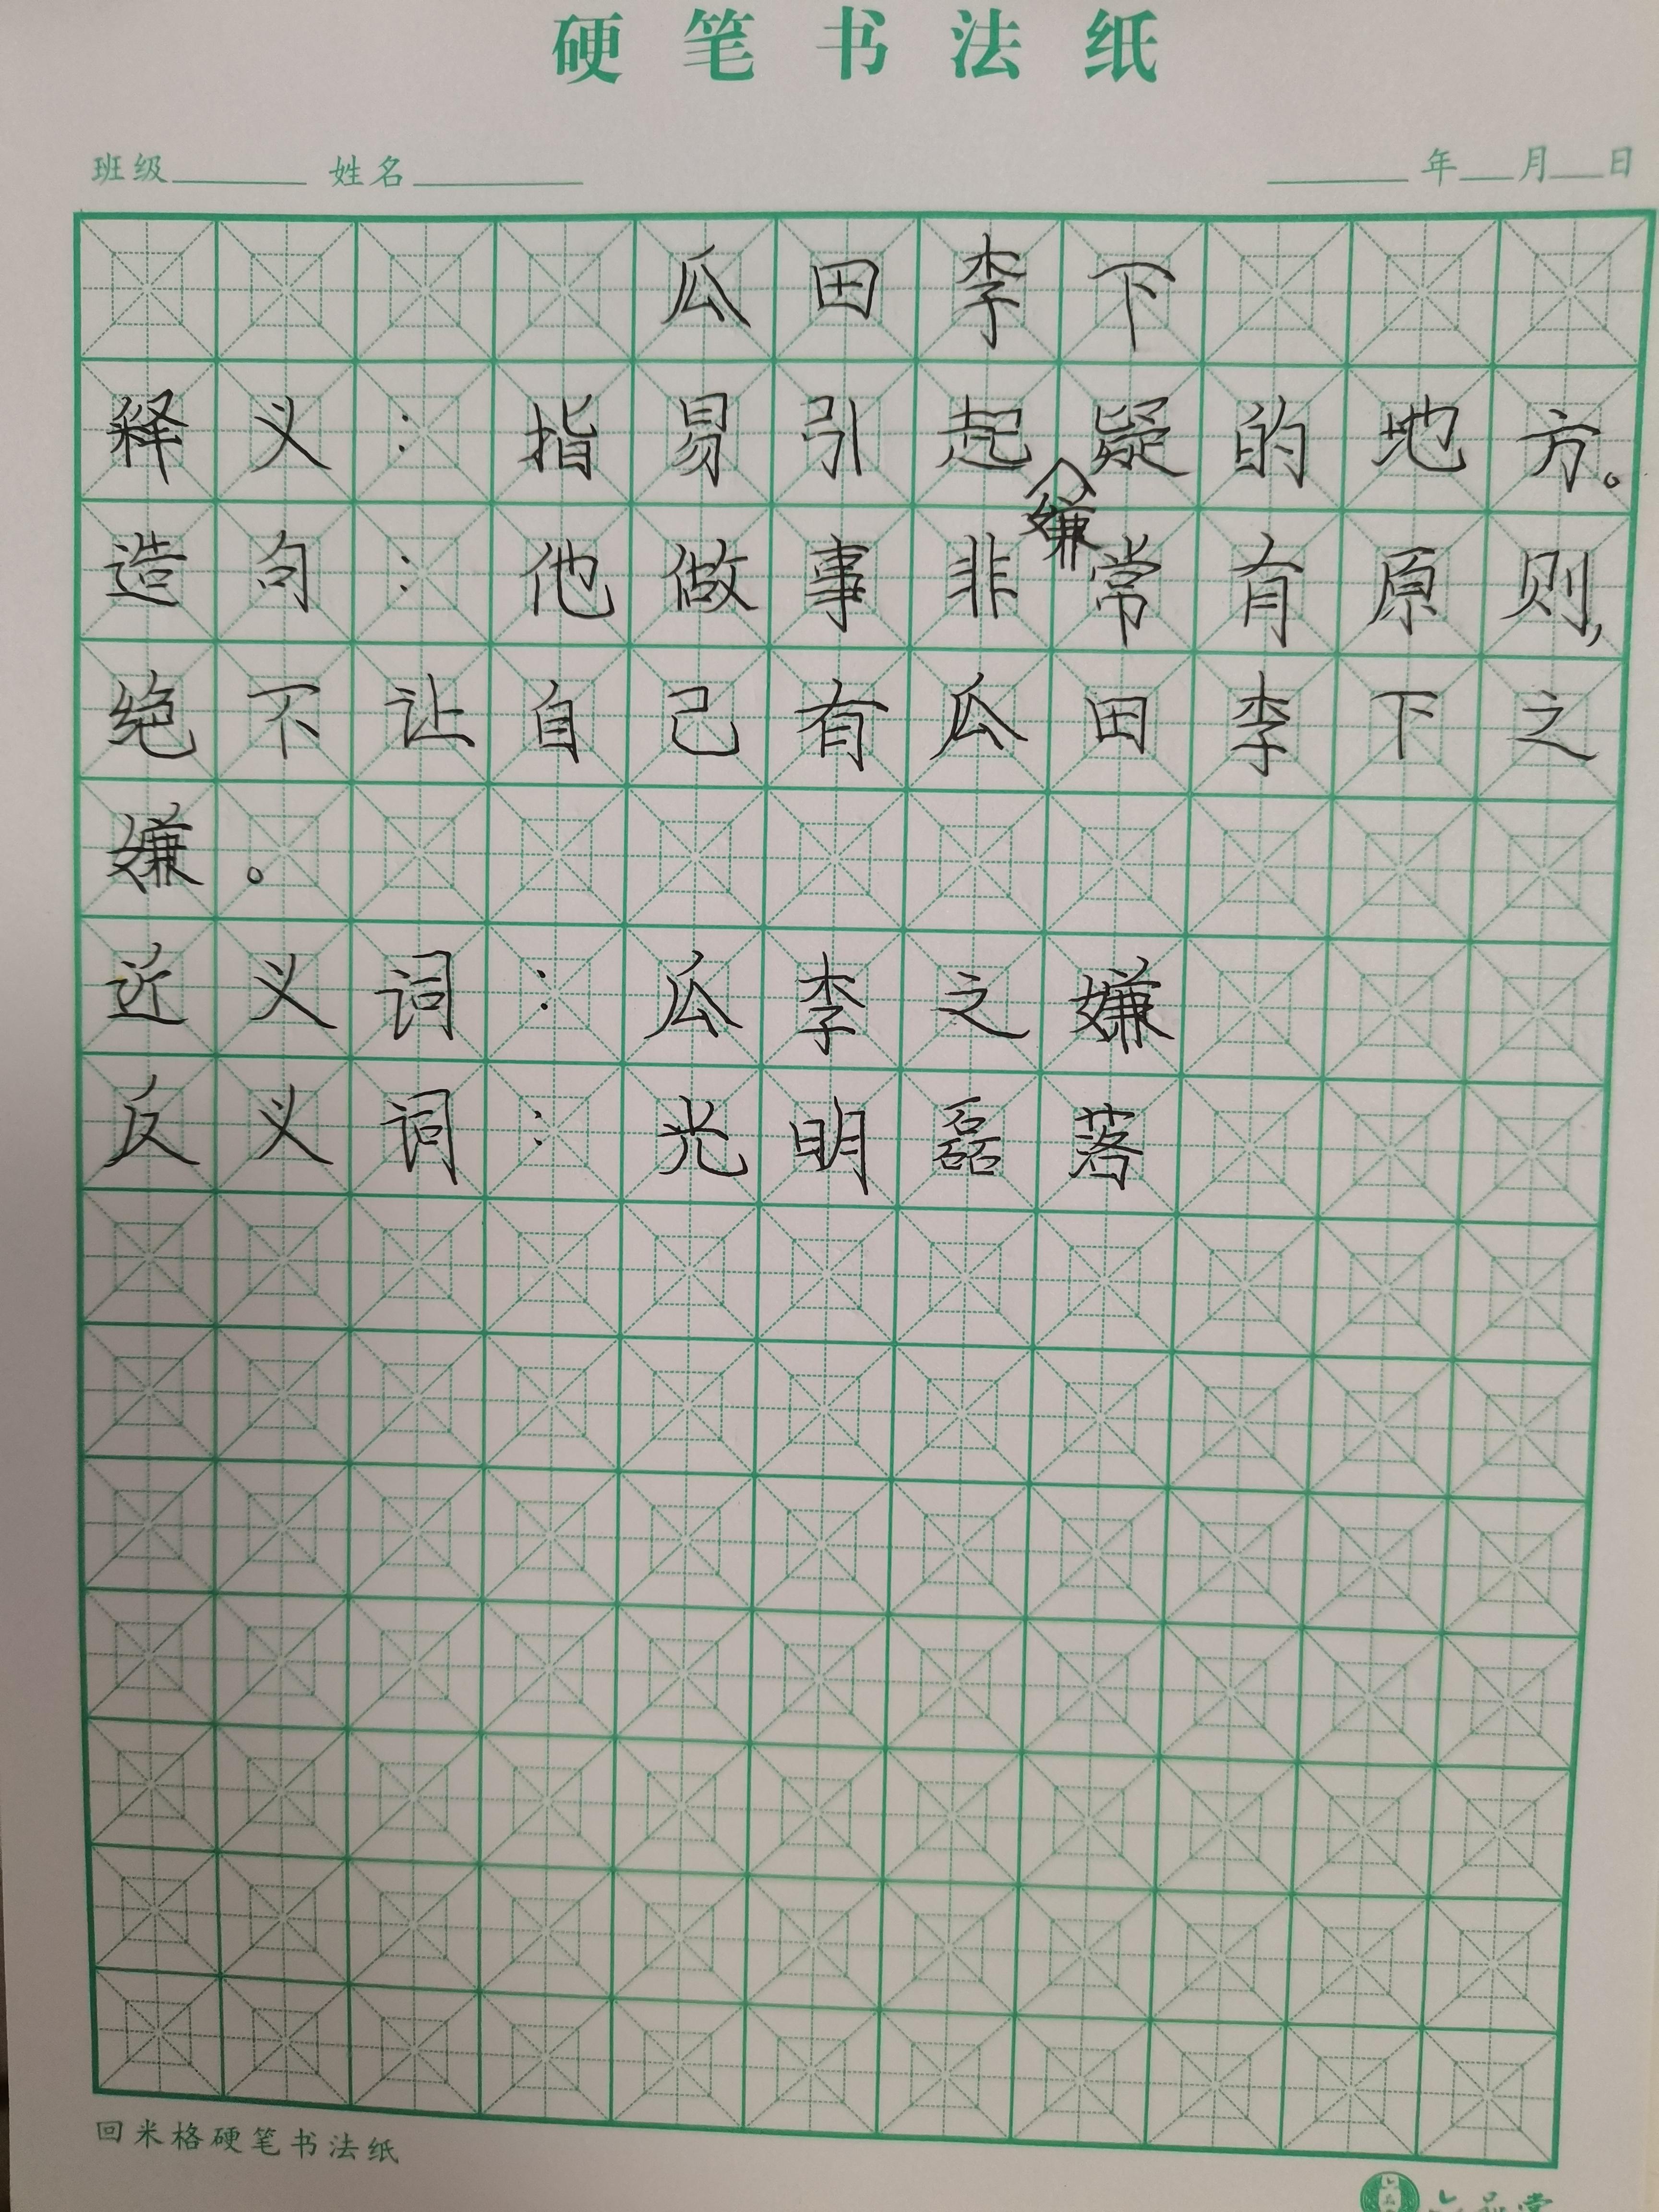 硬笔书法纸
班级 姓名 年 月 日
瓜田李下
释义：指易引起嫌疑的地方。
造句：他做事非常有原则，
绝不让自己有瓜田李下之
嫌。
近义词：瓜李之嫌
反义词：光明磊落
回米格硬笔书法纸